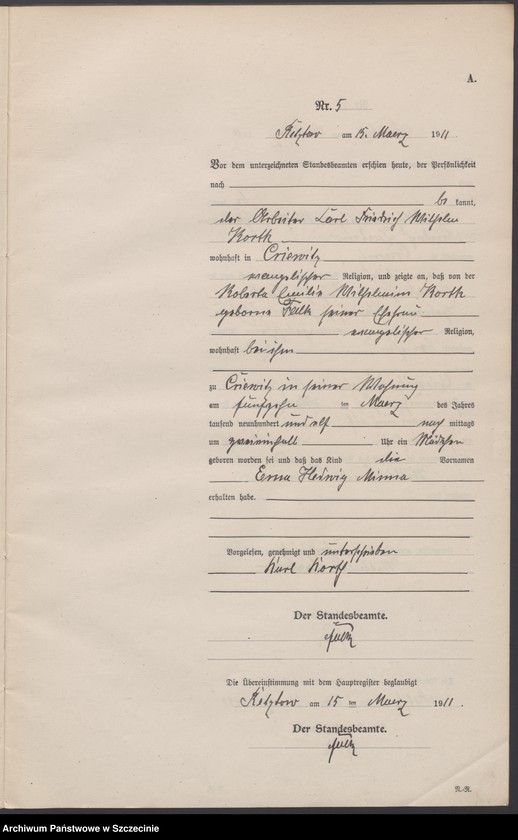 A.
Nr. 5
am 15. Maerz 1911
Vor dem unterzeichneten Standesbeamten erschien heute, der Persönlichkeit
nach
be kannt,
der Arbeiter Carl Friedrich Wilhelm
Korth
wohnhaft in Criewitz
evangelischer Religion, und zeigte an, daß von der
Emilie Wilhelmine Korth
geborne Falk seiner Ehefrau
evangelischer Religion,
wohnhaft bei ihm
zu Criewitz in seiner Wohnung
am fünfzehn ten Maerz des Jahres
tausend neunhundert und elf nach mittags
um Uhr ein Mädchen
geboren worden sei und daß das Kind die Vornamen
Erna Hedwig Minna
erhalten habe.
Vorgelesen, genehmigt und unterschrieben
Karl Korth
Der Standesbeamte.
Die Übereinstimmung mit dem Hauptregister beglaubigt
am 15 ten Maerz 1911.
Der Standesbeamte.
N.-R.
Archiwum Państwowe w Szczecinie